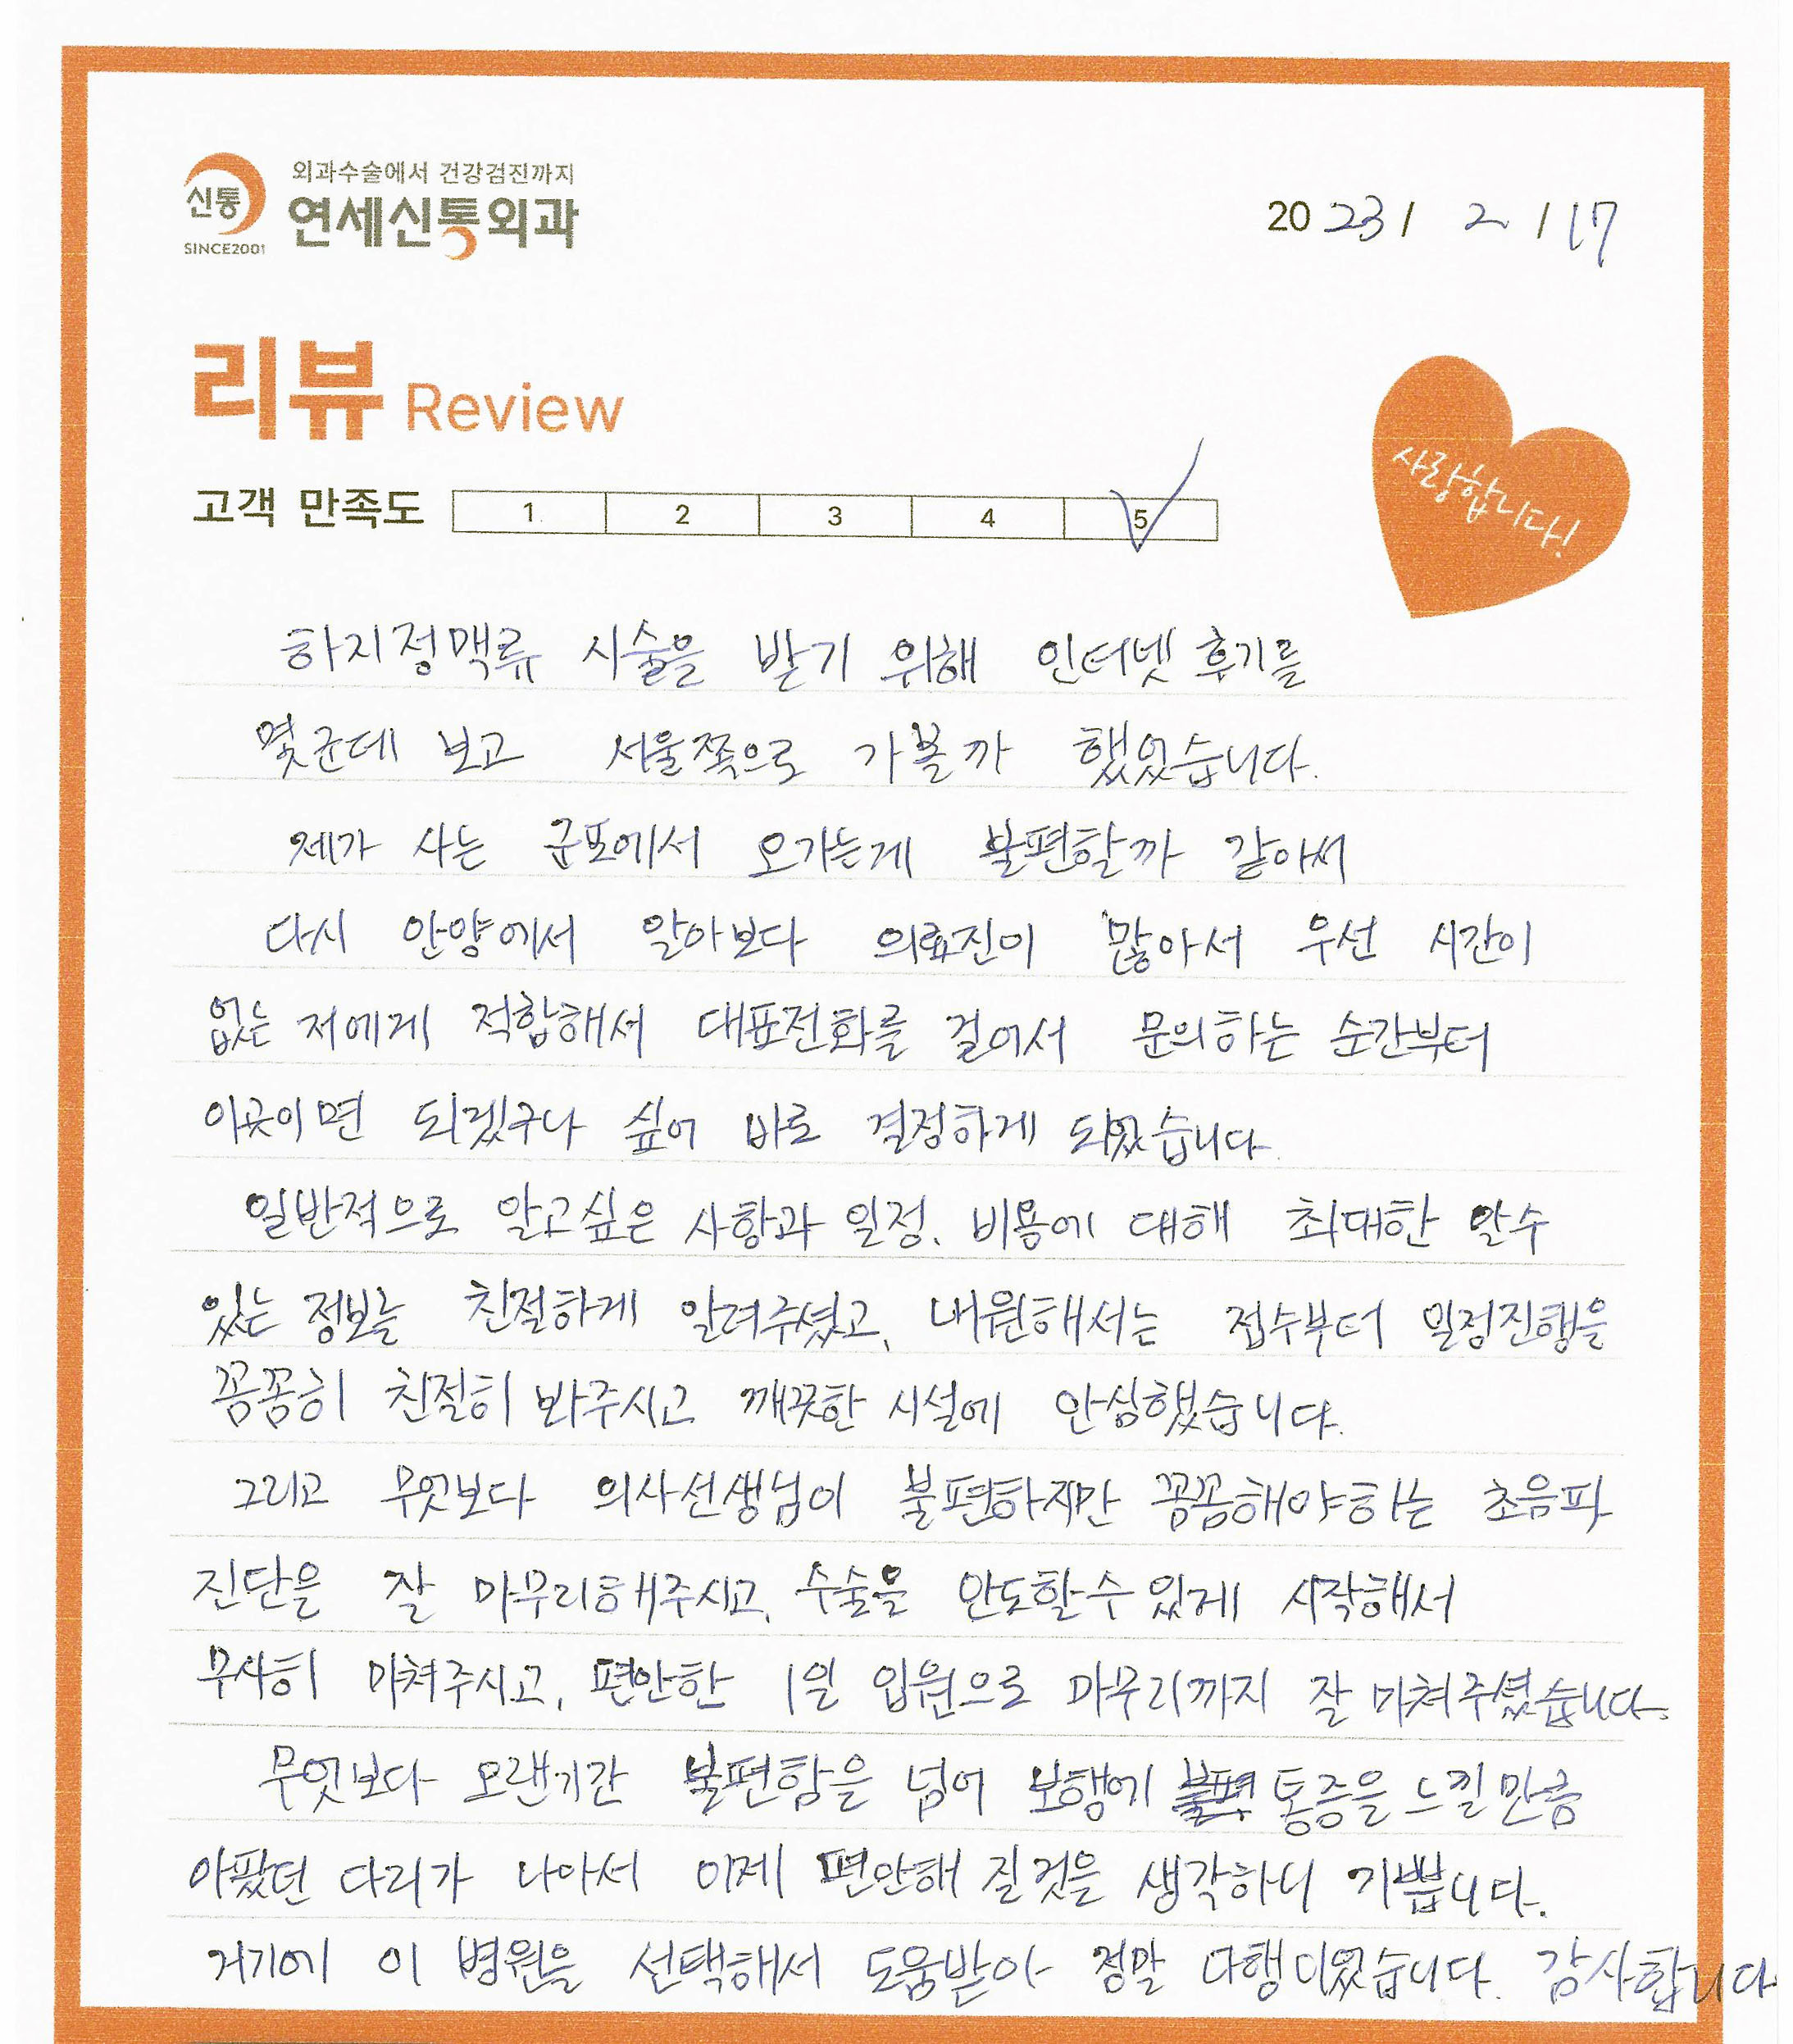 외과수술에서 건강검진까지
신통
연세신통외과
SINCE2001
2023 / 2 / 17
리뷰 Review
사랑합니다!
고객 만족도 1 2 3 4 5
하지정맥류 시술을 받기 위해 인터넷 후기를
몇군데 보고 서울쪽으로 가볼까 했었습니다.
제가 사는 군포에서 오가는게 불편할까 같아서
다시 안양에서 알아보다 의료진이 많아서 우선 시간이
없는 저에게 적합해서 대표전화를 걸어서 문의하는 순간부터
이곳이면 되겠구나 싶어 바로 결정하게 되었습니다
일반적으로 알고싶은 사항과 일정. 비용에 대해 최대한 알수
있는 정보를 친절하게 알려주셨고, 내원해서는 접수부터 일정진행을
꼼꼼히 친절히 봐주시고 깨끗한 시설에 안심했습니다.
그리고 무엇보다 의사선생님이 불편하지만 꼼꼼해야하는 초음파
진단을 잘 마무리해주시고, 수술을 안도할수있게 시작해서
무사히 마쳐주시고, 편안한 1일 입원으로 마무리까지 잘 마쳐주셨습니다.
무엇보다 오랜기간 불편함을 넘어 보행에 통증을 느낄만큼
아팠던 다리가 나아서 이제 편안해 질것을 생각하니 기쁩니다.
거기에 이 병원을 선택해서 도움받아 정말 다행이었습니다. 감사합니다